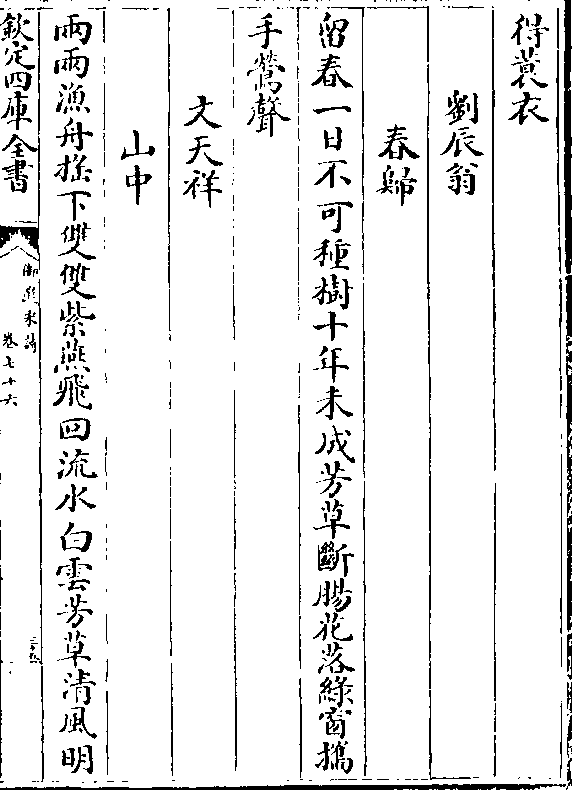 得蓑衣
劉辰翁
春歸
留春一日不可種樹十年未成芳草斷腸花落綠窗攜
手鶯聲
文天祥
山中
兩兩漁舟搖下雙雙紫燕飛回流水白雲芳草清風明
欽定四庫全書
御選宋詩
卷七十六